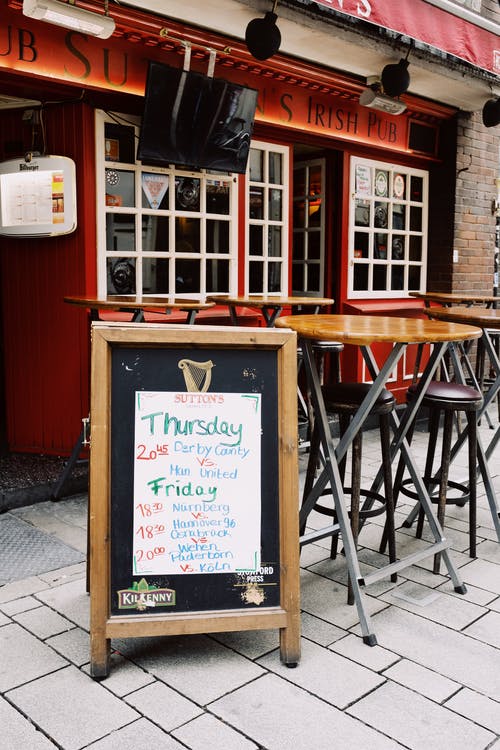 UB SUTTON'S IRISH PUB
SUTTON'S
Thursday
20 45 Derby County
vs.
Man United
Friday
18:30 Nürnberg
vs.
18 30 Hannover 96
Osnabrück
vs.
20 00 Wehen
Paderborn
vs. Köln
KILKENNY
PRESS